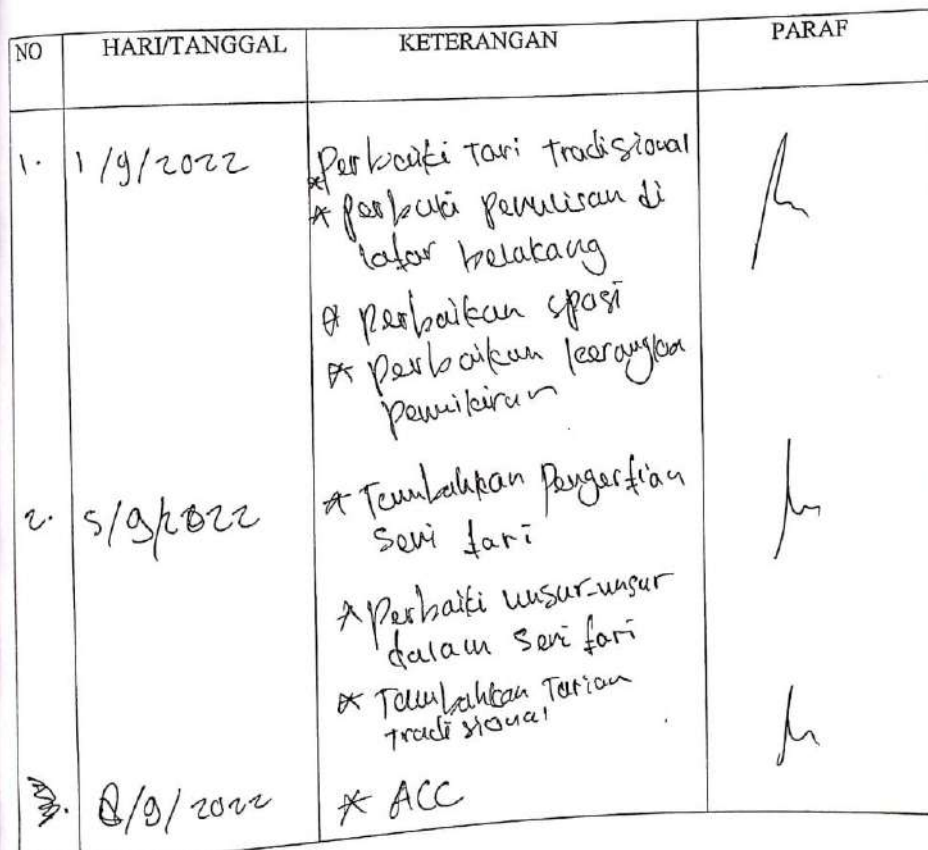 NO HARI/TANGGAL KETERANGAN PARAF
1. 1/9/2022 * Perbaiki Tari tradisional
* perbaiki penulisan di
latar belakang
* perbaikan spasi
* perbaikan kerangka
pemikiran
2. 5/9/2022 * Tambahkan Pengertian
Seni tari
* Perbaiki unsur-unsur
dalam seni tari
* Tambahkan Tarian
tradisional
8/9/2022 * ACC